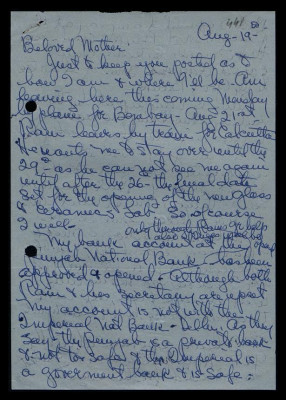 441
Aug-19-
Beloved Mother:
Just to keep you posted as to
how I am & where I'll be. Am
leaving here this coming Monday
by plane for Bombay - Aug 21st
Ram leaves by train for Calcutta
He wants me to stay over until the
29th as he can not see me again
until after the 26 - the final date
set for the opening of the new Glass
& Ceramics Lab. So of course
2 weeks
My bank account at the
Punjab National Bank - has been
approved & opened. Although both
Ram & his secretary are upset
my account is not with the
Imperial Nat Bank - Delhi. As they
say - the Punjab is a private bank
& not so safe & the Imperial is
a goverment bank & is safe.